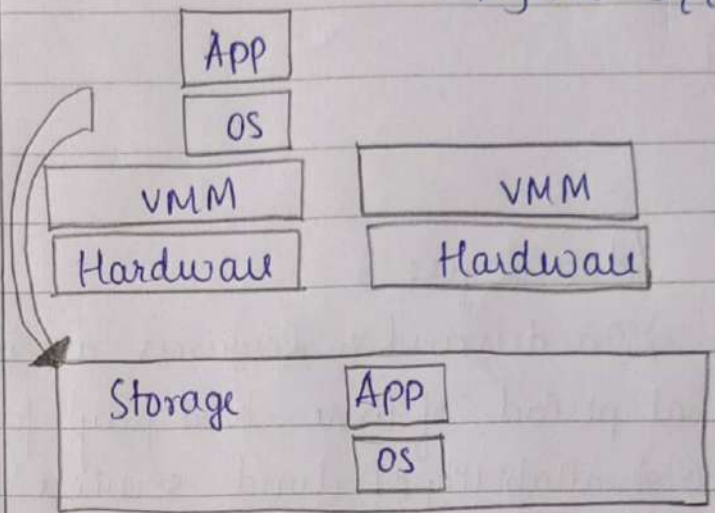 App
OS
VMM VMM
Hardware Hardware
Storage App
OS